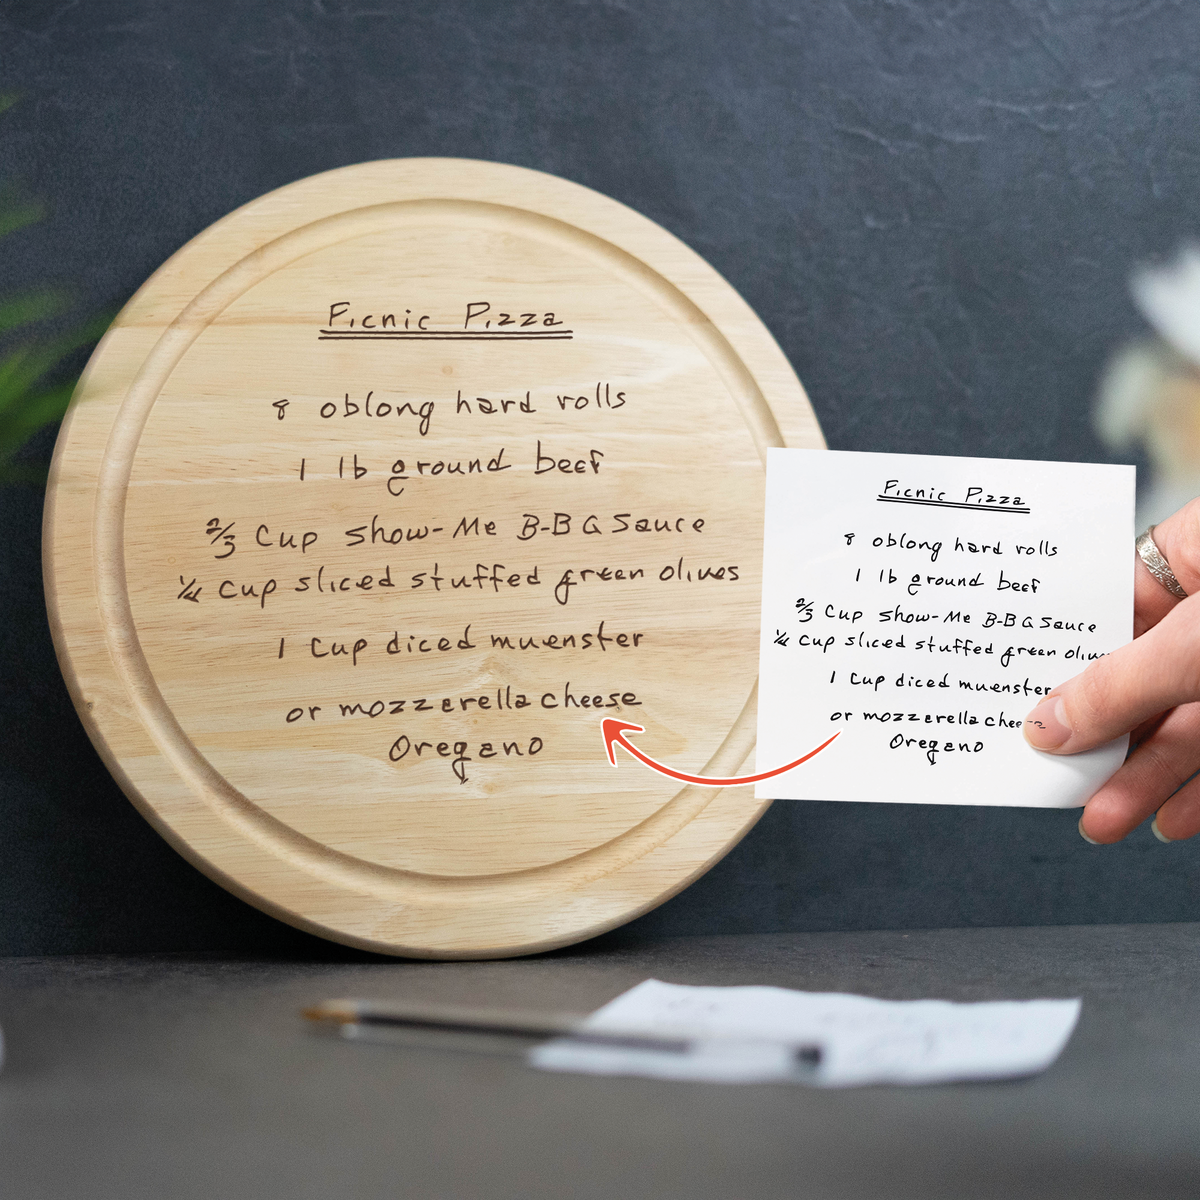 Picnic Pizza
8 oblong hard rolls
1 lb ground beef
2/3 Cup Show-Me B-B Q Sauce
1/4 Cup sliced stuffed green olives
1 Cup diced muenster
or mozzarella cheese
Oregano
Picnic Pizza
8 oblong hard rolls
1 lb ground beef
2/3 Cup Show-Me B-B Q Sauce
1/4 Cup sliced stuffed green olives
1 Cup diced muenster
or mozzarella cheese
Oregano